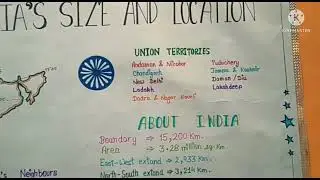 IA'S SIZE AND LOCATION
UNION TERRITORIES
Andaman & Nicobar
Chandigarh
New Delhi
Ladakh
Dadra & Nagar Haveli
Puducherry
Jammu & Kashmir
Daman / Diu
Lakshdeep
ABOUT INDIA
Boundary ⇒ 15,200 Km.
Area ⇒ 3.28 million sq. Km
East-West extend ⇒ 2,933 Km.
North-South extend ⇒ 3,214 Km.
's Neighbours
KINEMASTER